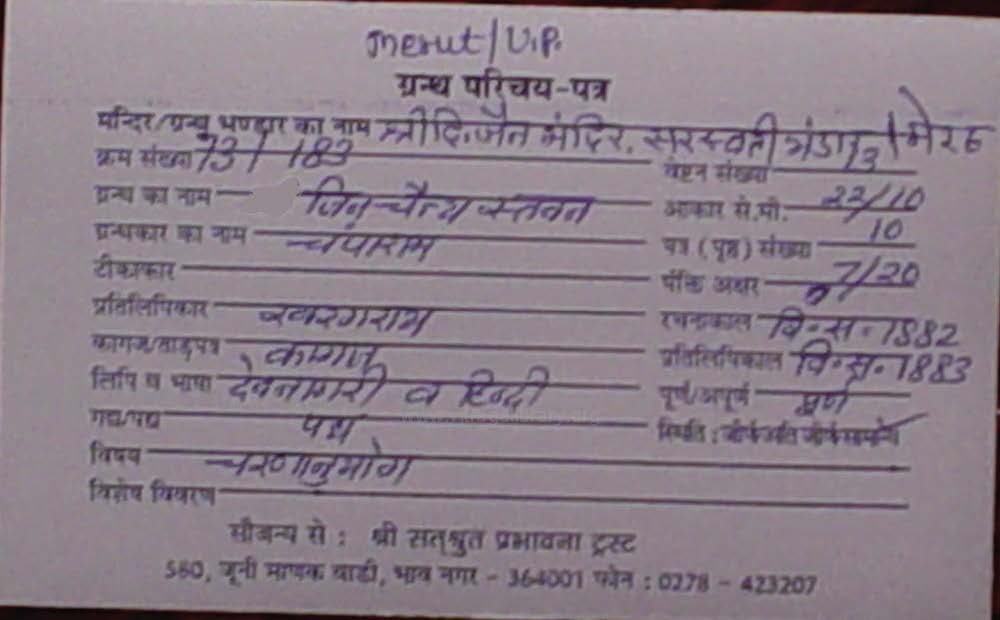 Merut/U.P.
ग्रन्थ परिचय-पत्र
मन्दिर/ग्रन्थ भण्डार का नाम श्री दि. जैन मंदिर. सरस्वती भंडार/मेरठ
क्रम संख्या 73/183 वेष्टन संख्या 73
ग्रन्थ का नाम जिन चैत्य स्तवन आकार से.मी. 22/10
ग्रन्थकार का नाम चंपाराम पत्र (पृष्ठ) संख्या 10
टीकाकार पंक्ति अक्षर 7/20
प्रतिलिपिकार रचनाकाल वि. स. 1882
कागज/ताड़पत्र कागज प्रतिलिपिकाल वि. स. 1883
लिपि व भाषा देवनागरी व हिन्दी पूर्ण/अपूर्ण पूर्ण
गद्य/पद्य पद्य स्थिति :
विषय चरणानुयोग
विशेष विवरण
सौजन्य से : श्री सत्श्रुत प्रभावना ट्रस्ट
580, जूनी माणक वाडी, भाव नगर - 364001 फोन : 0278 - 423207